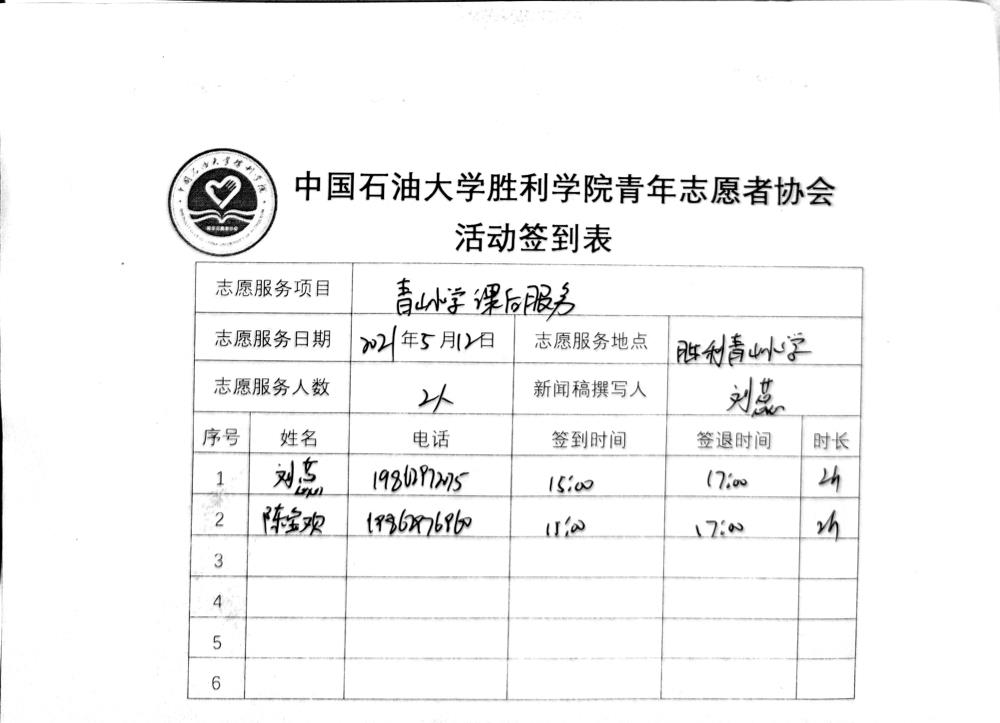 中国石油大学胜利学院青年志愿者协会
活动签到表
志愿服务项目 青山小学课后服务
志愿服务日期 2021年5月12日 志愿服务地点 胜利青山小学
志愿服务人数 2人 新闻稿撰写人 刘蕊
序号 姓名 电话 签到时间 签退时间 时长
1 刘蕊 15:00 17:00 2h
2 陈宝欢 15:00 17:00 2h
3
4
5
6